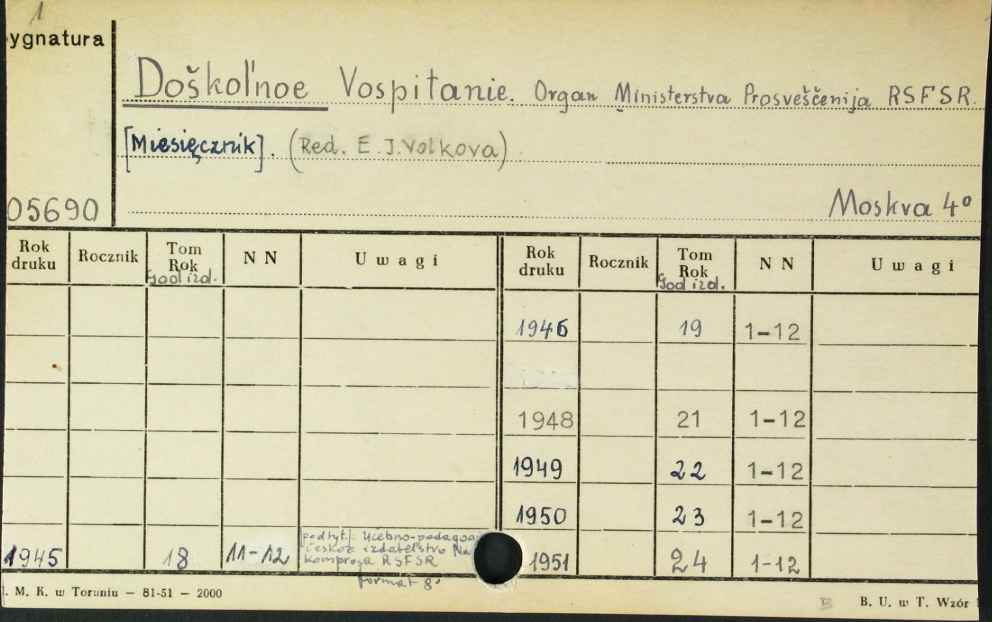 1
ygnatura
Doškol'noe Vospitanie. Organ Ministerstva Prosveščenija RSFSR.
[Miesięcznik]. (Red. E.J.Volkova)
05690
Moskva 4°
Rok druku Rocznik Tom Rok God izd. N N Uwagi Rok druku Rocznik Tom Rok God izd. N N Uwagi
1946 19 1-12
1948 21 1-12
1949 22 1-12
1950 23 1-12
podtyt.: Učebno-pedagogi
českoe izdatel'stvo Na
komprosa RSFSR
1945 18 11-12 1951 24 1-12
format 8°
. M. K. w Toruniu – 81-51 – 2000
B. U. w T. Wzór